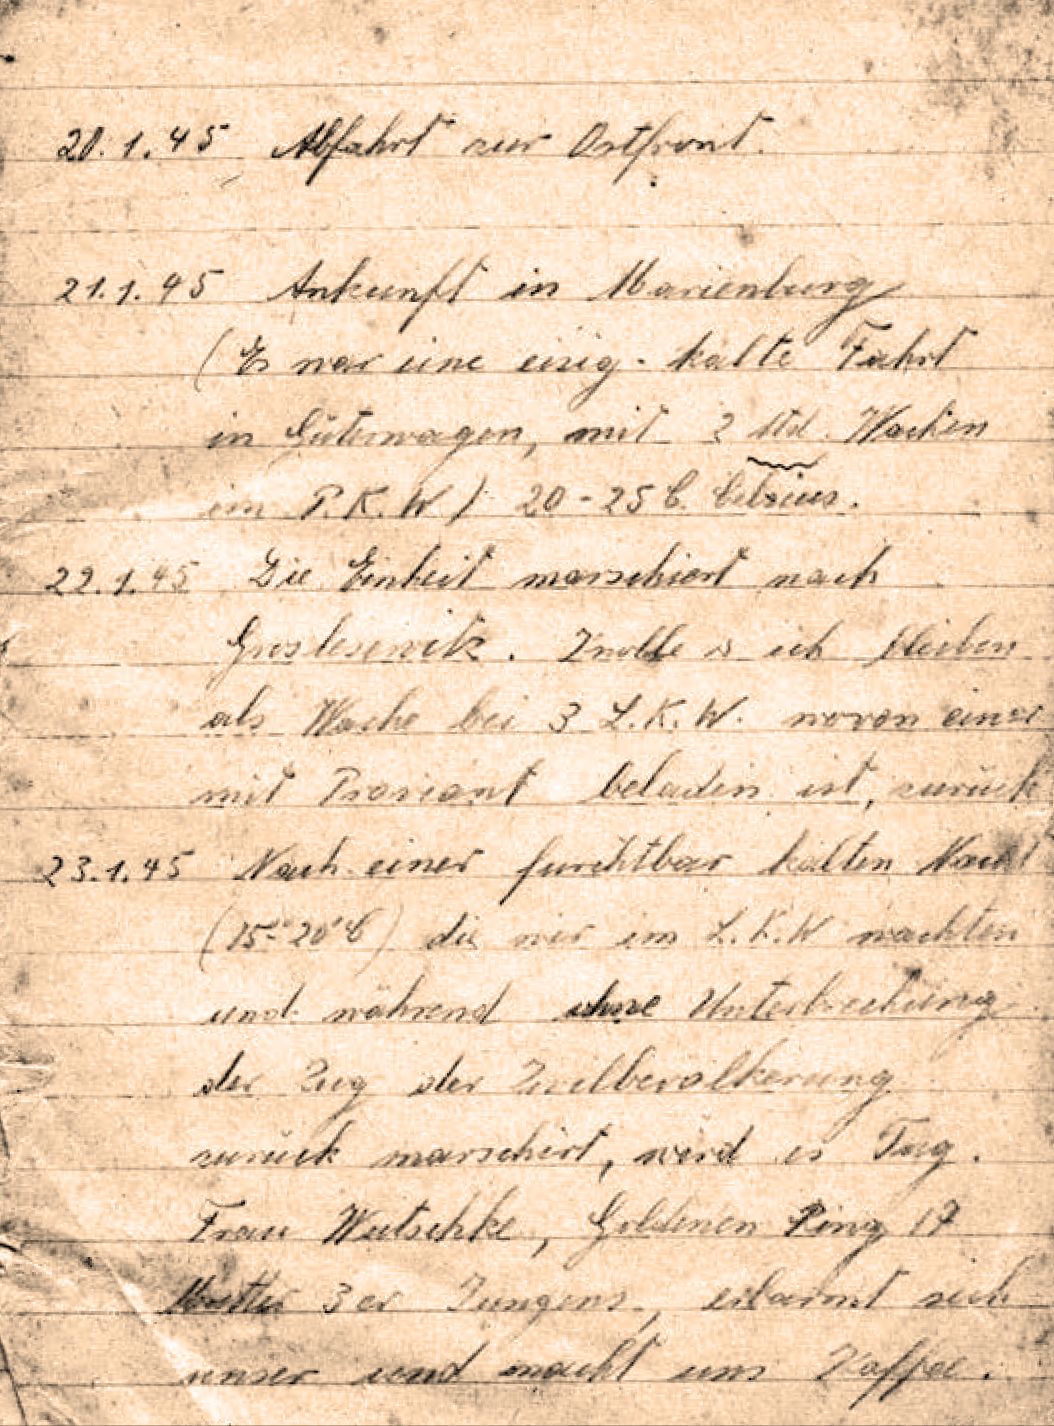 20.1.45 Abfahrt zur Ostfront.
21.1.45 Ankunft in Marienburg
(Es war eine eisig-kalte Fahrt
in Güterwagen, mit 2 std. Wachen
im P.K.W) 20-25 C. Celsius.
22.1.45 Die Einheit marschiert nach
Greslesewitz. & ich bleiben
als Wache bei 3 L.K.W. wovon einer
mit Proviant beladen ist, zurück
23.1.45 Nach einer furchtbar kalten Nacht
(15°-20°C) die wir im L.K.W wachten
und während ohne Unterbrechung
der Zug der Zivilbevölkerung
zurück marschirt, wird es Tag.
Frau Watschke, Goldenen Ring 17
Mutter 3er Jungens, erbarmt sich
unser und macht uns Kaffee.